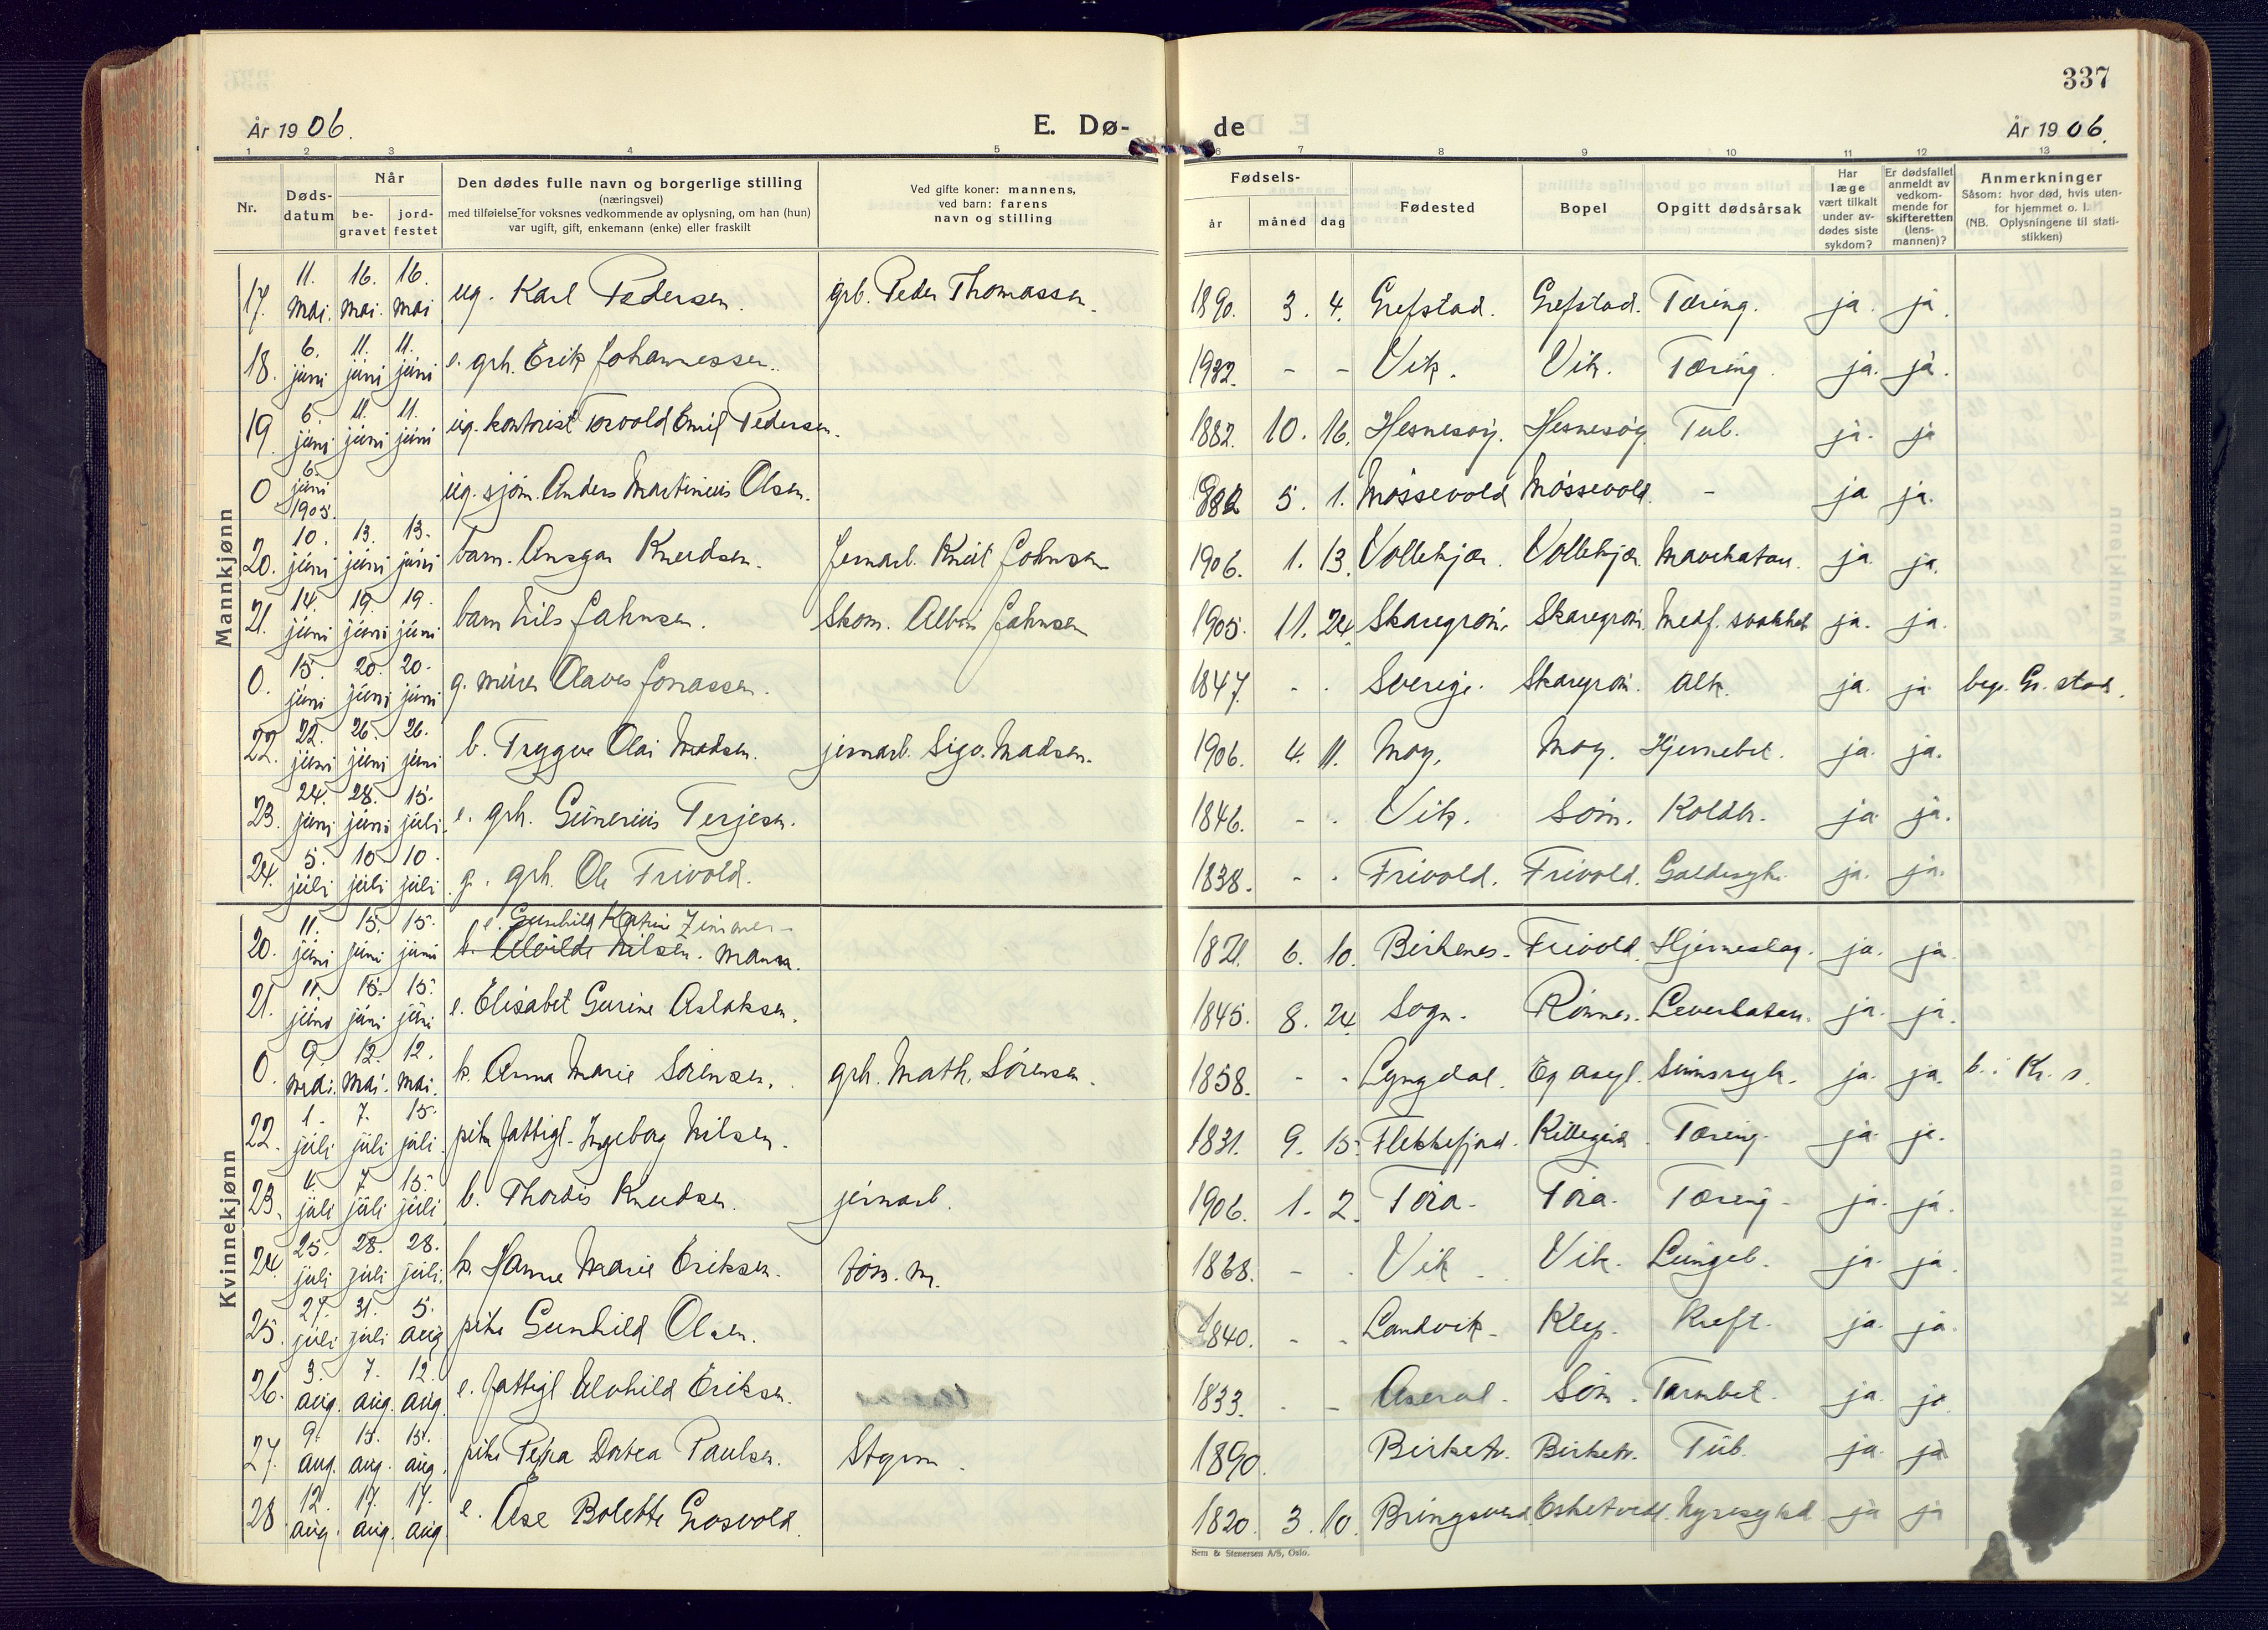 337
År 1906.
E. Dø-
de
År 1906.
1 2 3 4 5 6 7 8 9 10 11 12 13
Nr.
Døds-
datum
Når
be-
gravet
jord-
festet
Den dødes fulle navn og borgerlige stilling
(næringsvei)
med tilføielse for voksnes vedkommende av oplysning, om han (hun)
var ugift, gift, enkemann (enke) eller fraskilt
Ved gifte koner: mannens,
ved barn: farens
navn og stilling
Fødsels-
år måned dag
Fødested
Bopel
Opgitt dødsårsak
Har
læge
vært tilkalt
under av-
dødes siste
sykdom?
Er dødsfallet
anmeldt av
vedkom-
mende for
skifteretten
(lens-
mannen)?
Anmerkninger
Såsom: hvor død, hvis uten-
for hjemmet o. l.
(NB. Oplysningene til stati-
stikken)
Mannkjønn
17. 11. mai. 16. mai. 16. mai ug. Karl Pedersen. grb. Peder Thomassen. 1890. 3. 4. Grefstad. Grefstad. Tæring. ja. ja.
18. 6. juni 11. juni 11. juni e. grh. Erik Johannessen. 1932. - - Vik. Vik. Tæring. ja. ja.
19. 6. juni 11. juni 11. juni ug. kontorist Torvold Emil Pedersen. 1882. 10. 16. Hesnesøy. Hesnesøy Tub. ja. ja
0 6. juni 1905. ug. sjøm. Anders Martinius Olsen. 1882 5. 1. Møssevold Møssevold. - ja ja.
20. 10. juni 13. juni 13. juni barn. Ansgar Knudsen. Jernarb. Knut Johnsen 1906. 1. 13. Vollekjær. Vollekjær. Mavekatarr. ja. ja.
21. 14. juni 19. juni 19. juni barn Nils Jahnsen. Skom. Albin Jahnsen 1905. 11. 24. Skaregrøm. Skaregrøm. Medf. svakhet ja. ja.
0. 15. juni 20. juni 20. juni g. murer Olaves Jonassen. 1847. - . Sverige. Skaregrøm. Alk. ja. ja. beg. Gr. stad.
22. 22. juni 26. juni 26. juni b. Trygve Olai Madsen. jernarb. Sigv. Madsen. 1906. 4. 11. Moy. Moy. Hjernebet. ja. ja.
23. 24. juni 28. juni 15. juli e. grh. Gunerius Terjesen. 1846. - . Vik. Søm. Koldbr. ja ja.
24. 5. juli 10 juli 10. juli g. grh. Ole Frivold. 1838. - . Frivold. Frivold. Galdesyk. ja. ja.
Kvinnekjønn
20. 11. juni 15. juni 15. juni e. Gunhild Katrine Zimmer-
e. Alvilde Nilsen. mann. 1821. 6. 10. Birkenes. Frivold. Hjerneslag. ja. ja.
21. 11 juni 15. juni 15. juni e. Elisabet Gurine Aslaksen. 1845. 8. 24. Sogn. Rønnes. Leverkatarr. ja. ja.
0. 9. mai. 12. mai. 12. mai. k. Anna Marie Sørensen. grh. Math. Sørensen. 1858. - - Lyngdal. Eg asyl. Sinnssyk. ja. ja. b. i Kr. s.
22. 1. juli 7. juli 15. juli pike fattigl. Ingeborg Nilsen. 1831. 9. 15. Flekkefjord. Killegård. Tæring. ja. ja.
23. 4. juli 7. juli 15. juli b. Thordis Knudsen. jernarb. 1906. 1. 2. Tøra. Tøra. Tæring - ja. ja.
24. 25. juli 28. juli 28. juli. k. Hanne Marie Eriksen. tøm. m. 1868. - . Vik. Vik. Lungeb. ja. ja.
25. 27. juli 31. juli 5. aug pike Gunhild Olsen. 1840. - - Landvik. Klep. Kreft. ja. ja.
26. 3. aug. 7. aug. 12. aug. e. fattigl Alvhild Eriksen. 1833. . - Aseral. Søm. Tarmbet. ja. ja
27. 9. aug. 15. aug. 15. aug. pike Petra Dortea Paulsen. Styrm. 1890. Birketv. Birketv. Tub. ja. ja
28. 12. aug. 17. aug. 17. aug. e. Åse Bolette Grosvold. 1820. 3. 10. Bringsverd. Eskelvedt. Nyresykd ja ja
Sem & Stenersen A/S, Oslo.